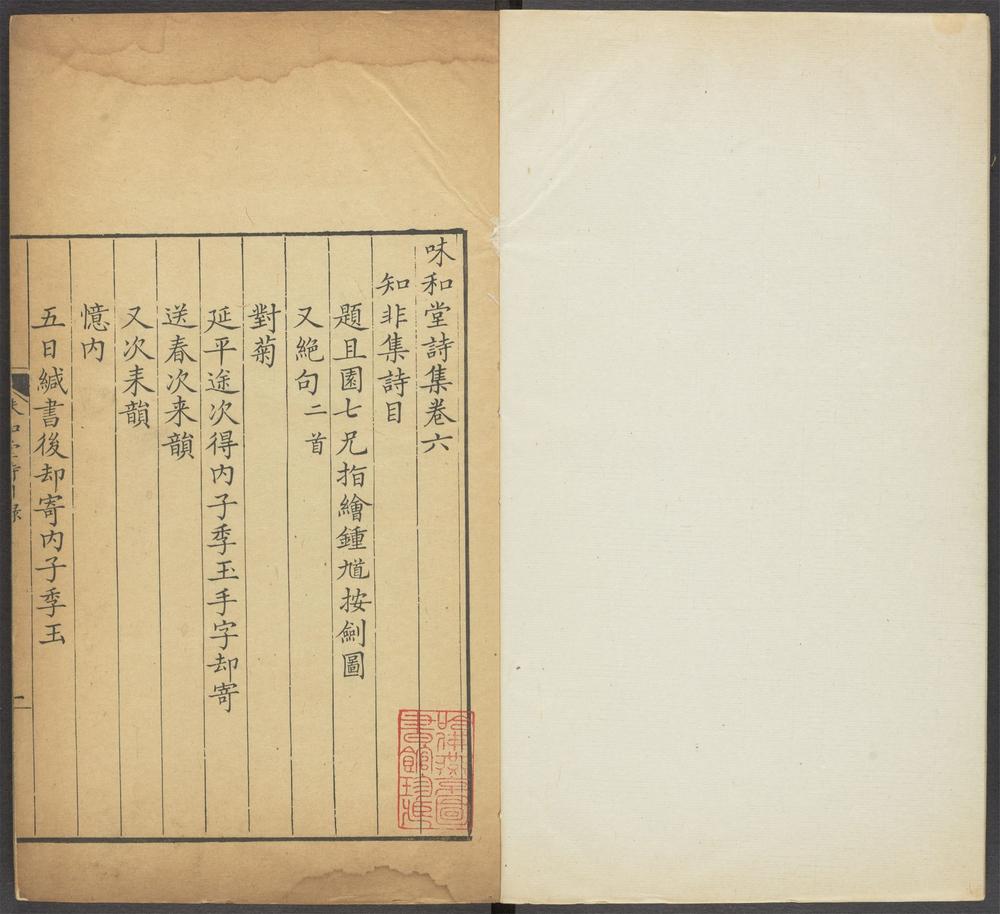 味和堂詩集卷六
知非集詩目
題且園七兄指繪鍾馗按劍圖
又絕句二首
對菊
延平途次得内子季玉手字却寄
送春次来韻
又次来韻
憶内
五日緘書後却寄内子季玉
哈佛燕京圖書館珍藏
一